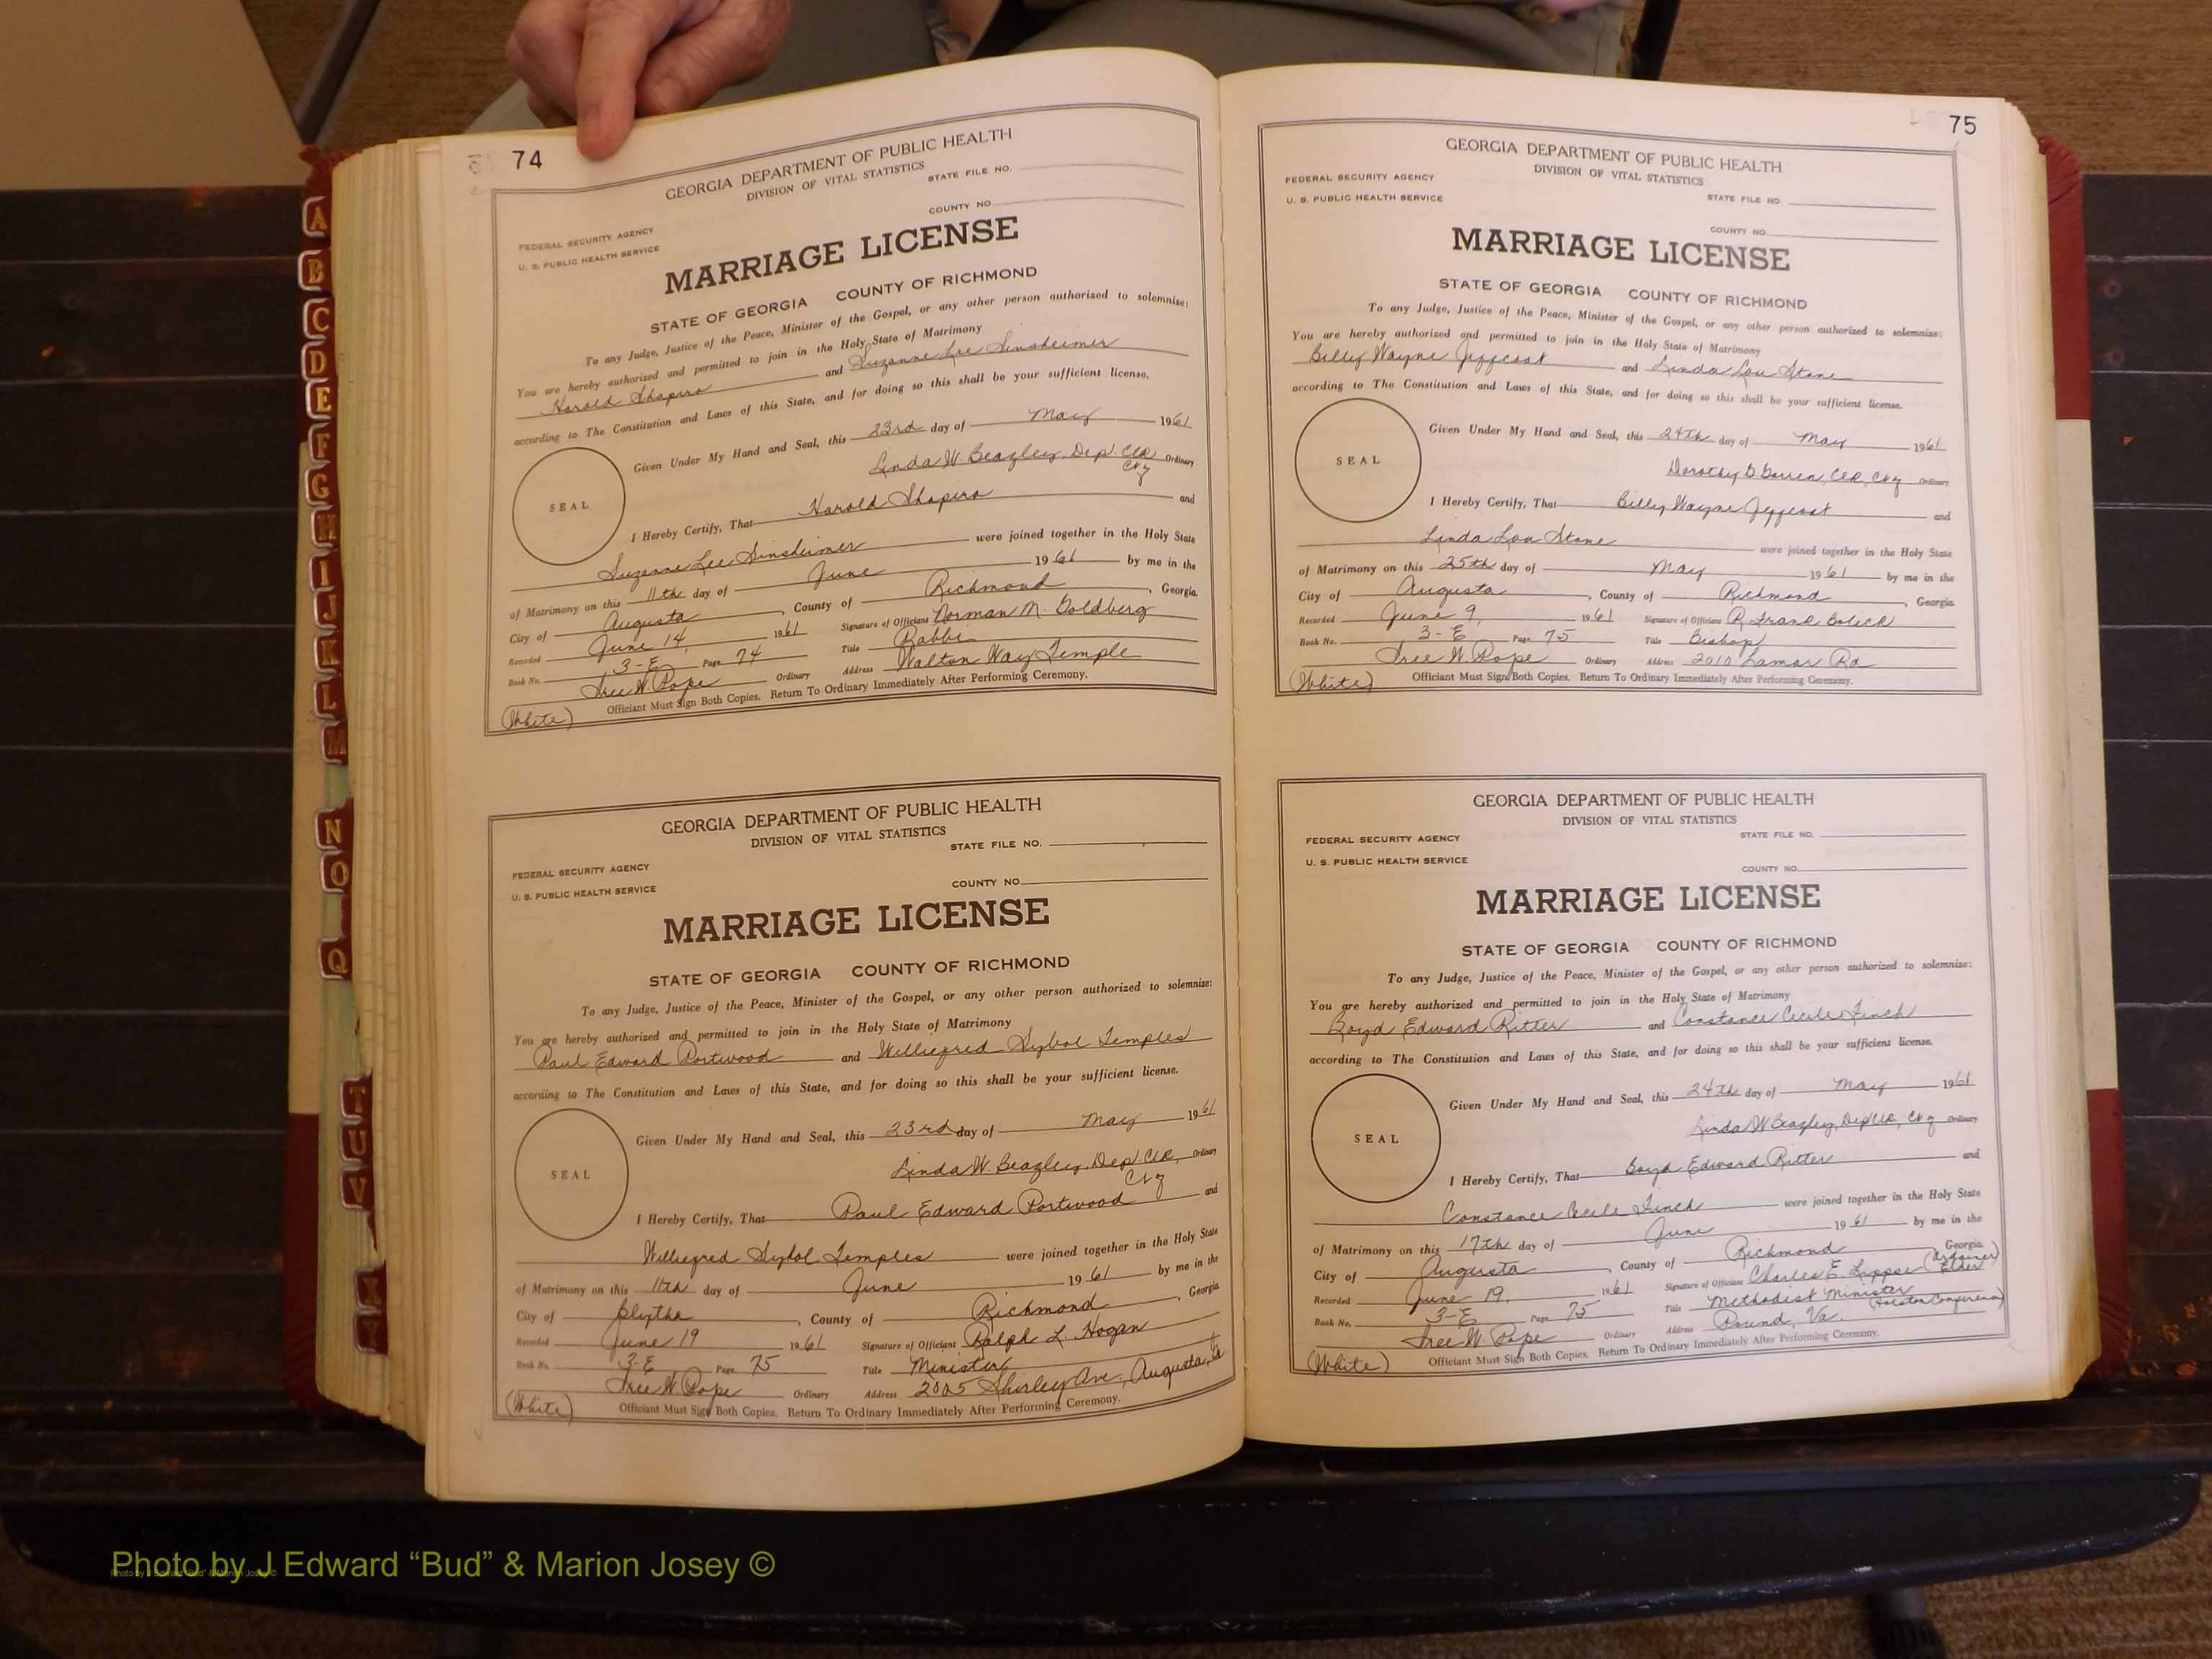 74
GEORGIA DEPARTMENT OF PUBLIC HEALTH
DIVISION OF VITAL STATISTICS
STATE FILE NO.
COUNTY NO.
FEDERAL SECURITY AGENCY
U. S. PUBLIC HEALTH SERVICE
MARRIAGE LICENSE
STATE OF GEORGIA COUNTY OF RICHMOND
To any Judge, Justice of the Peace, Minister of the Gospel, or any other person authorized to solemnize:
You are hereby authorized and permitted to join in the Holy State of Matrimony
Harold Shapiro and Suzanne Lee Sinsheimer
according to The Constitution and Laws of this State, and for doing so this shall be your sufficient license.
Given Under My Hand and Seal, this 23rd day of May 1961
Linda W. Beazley, Dep. Clk Ordinary
SEAL
I Hereby Certify, That Harold Shapiro and
Suzanne Lee Sinsheimer were joined together in the Holy State
of Matrimony on this 11th day of June 1961 by me in the
City of Augusta, County of Richmond, Georgia.
Recorded June 14, 1961 Signature of Officiant Norman M. Goldberg
Book No. 3-E Page 74 Title Rabbi
Tree W. Pope Ordinary Address Walton Way Temple
(White) Officiant Must Sign Both Copies. Return To Ordinary Immediately After Performing Ceremony.
GEORGIA DEPARTMENT OF PUBLIC HEALTH
DIVISION OF VITAL STATISTICS
STATE FILE NO.
FEDERAL SECURITY AGENCY
COUNTY NO.
U. S. PUBLIC HEALTH SERVICE
MARRIAGE LICENSE
STATE OF GEORGIA COUNTY OF RICHMOND
To any Judge, Justice of the Peace, Minister of the Gospel, or any other person authorized to solemnize:
You are hereby authorized and permitted to join in the Holy State of Matrimony
Paul Edward Portwood and Williefred Sybol Temples
according to The Constitution and Laws of this State, and for doing so this shall be your sufficient license.
Given Under My Hand and Seal, this 23rd day of May 1961
Linda W. Beazley, Dep. Clk, Ordinary
SEAL
I Hereby Certify, That Paul Edward Portwood and
Williefred Sybol Temples were joined together in the Holy State
of Matrimony on this 11th day of June 1961 by me in the
City of Blythe, County of Richmond, Georgia
Recorded June 19 1961 Signature of Officiant Ralph L. Hogan
Book No. 3-E Page 75 Title Minister
Tree W. Pope Ordinary Address 2005 Shirley Ave., Augusta, Ga.
(White) Officiant Must Sign Both Copies. Return To Ordinary Immediately After Performing Ceremony.
75
GEORGIA DEPARTMENT OF PUBLIC HEALTH
DIVISION OF VITAL STATISTICS
FEDERAL SECURITY AGENCY
U. S. PUBLIC HEALTH SERVICE
STATE FILE NO.
COUNTY NO.
MARRIAGE LICENSE
STATE OF GEORGIA COUNTY OF RICHMOND
To any Judge, Justice of the Peace, Minister of the Gospel, or any other person authorized to solemnize:
You are hereby authorized and permitted to join in the Holy State of Matrimony
Billy Wayne Jeffcoat and Linda Lou Stone
according to The Constitution and Laws of this State, and for doing so this shall be your sufficient license.
Given Under My Hand and Seal, this 24th day of May 1961
SEAL
Dorothy B. Clk, Ordinary
I Hereby Certify, That Billy Wayne Jeffcoat and
Linda Lou Stone were joined together in the Holy State
of Matrimony on this 25th day of May 1961 by me in the
City of Augusta, County of Richmond, Georgia.
Recorded June 9, 1961 Signature of Officiant R. Frank Bolick
Book No. 3-E Page 75 Title Bishop
Tree W. Pope Ordinary Address 2010 Lamar Rd
(White) Officiant Must Sign Both Copies. Return To Ordinary Immediately After Performing Ceremony.
GEORGIA DEPARTMENT OF PUBLIC HEALTH
DIVISION OF VITAL STATISTICS
FEDERAL SECURITY AGENCY
STATE FILE NO.
U. S. PUBLIC HEALTH SERVICE
COUNTY NO.
MARRIAGE LICENSE
STATE OF GEORGIA COUNTY OF RICHMOND
To any Judge, Justice of the Peace, Minister of the Gospel, or any other person authorized to solemnize:
You are hereby authorized and permitted to join in the Holy State of Matrimony
Boyd Edward Ritter and Constance Cecile Finch
according to The Constitution and Laws of this State, and for doing so this shall be your sufficient license.
Given Under My Hand and Seal, this 24th day of May 1961
SEAL
Linda W Beazley, Dep Clk, Ordinary
I Hereby Certify, That Boyd Edward Ritter and
Constance Cecile Finch were joined together in the Holy State
of Matrimony on this 17th day of June 1961 by me in the
City of Augusta, County of Richmond Georgia
Recorded June 19, 1961 Signature of Officiant Charles E. Lippse Elder)
Book No. 3-E Page 75 Title Methodist Minister (Holston Conference)
Tree W. Pope Ordinary Address Pound, Va.
(White) Officiant Must Sign Both Copies. Return To Ordinary Immediately After Performing Ceremony.
A
B
C
D
E
F
G
H
I
J
K
L
M
N
O
Q
T
U
V
Y
Photo by J Edward “Bud” & Marion Josey ©
Photo by J Edward “Bud” & Marion Josey ©